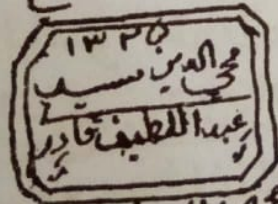 ١٣٢٥
محي الدين سيد
عبد اللطيف قادري